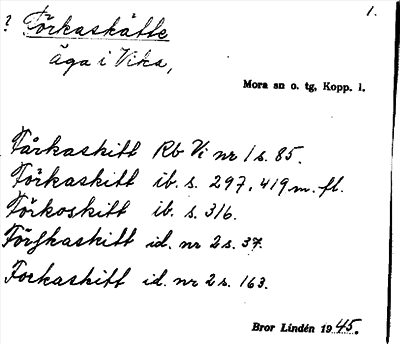 ? Törkaskätte 1.
äga i Vika,
Mora sn o. tg, Kopp. l.
Tårkaskitt Rb Vi nr 1 s. 85.
Törkaskitt ib. s. 297, 419 m. fl.
Törkoskitt ib. s. 316.
Törfkaskitt id. nr 2 s. 37.
Torkaskitt id. nr 2 s. 163.
Bror Lindén 1945.